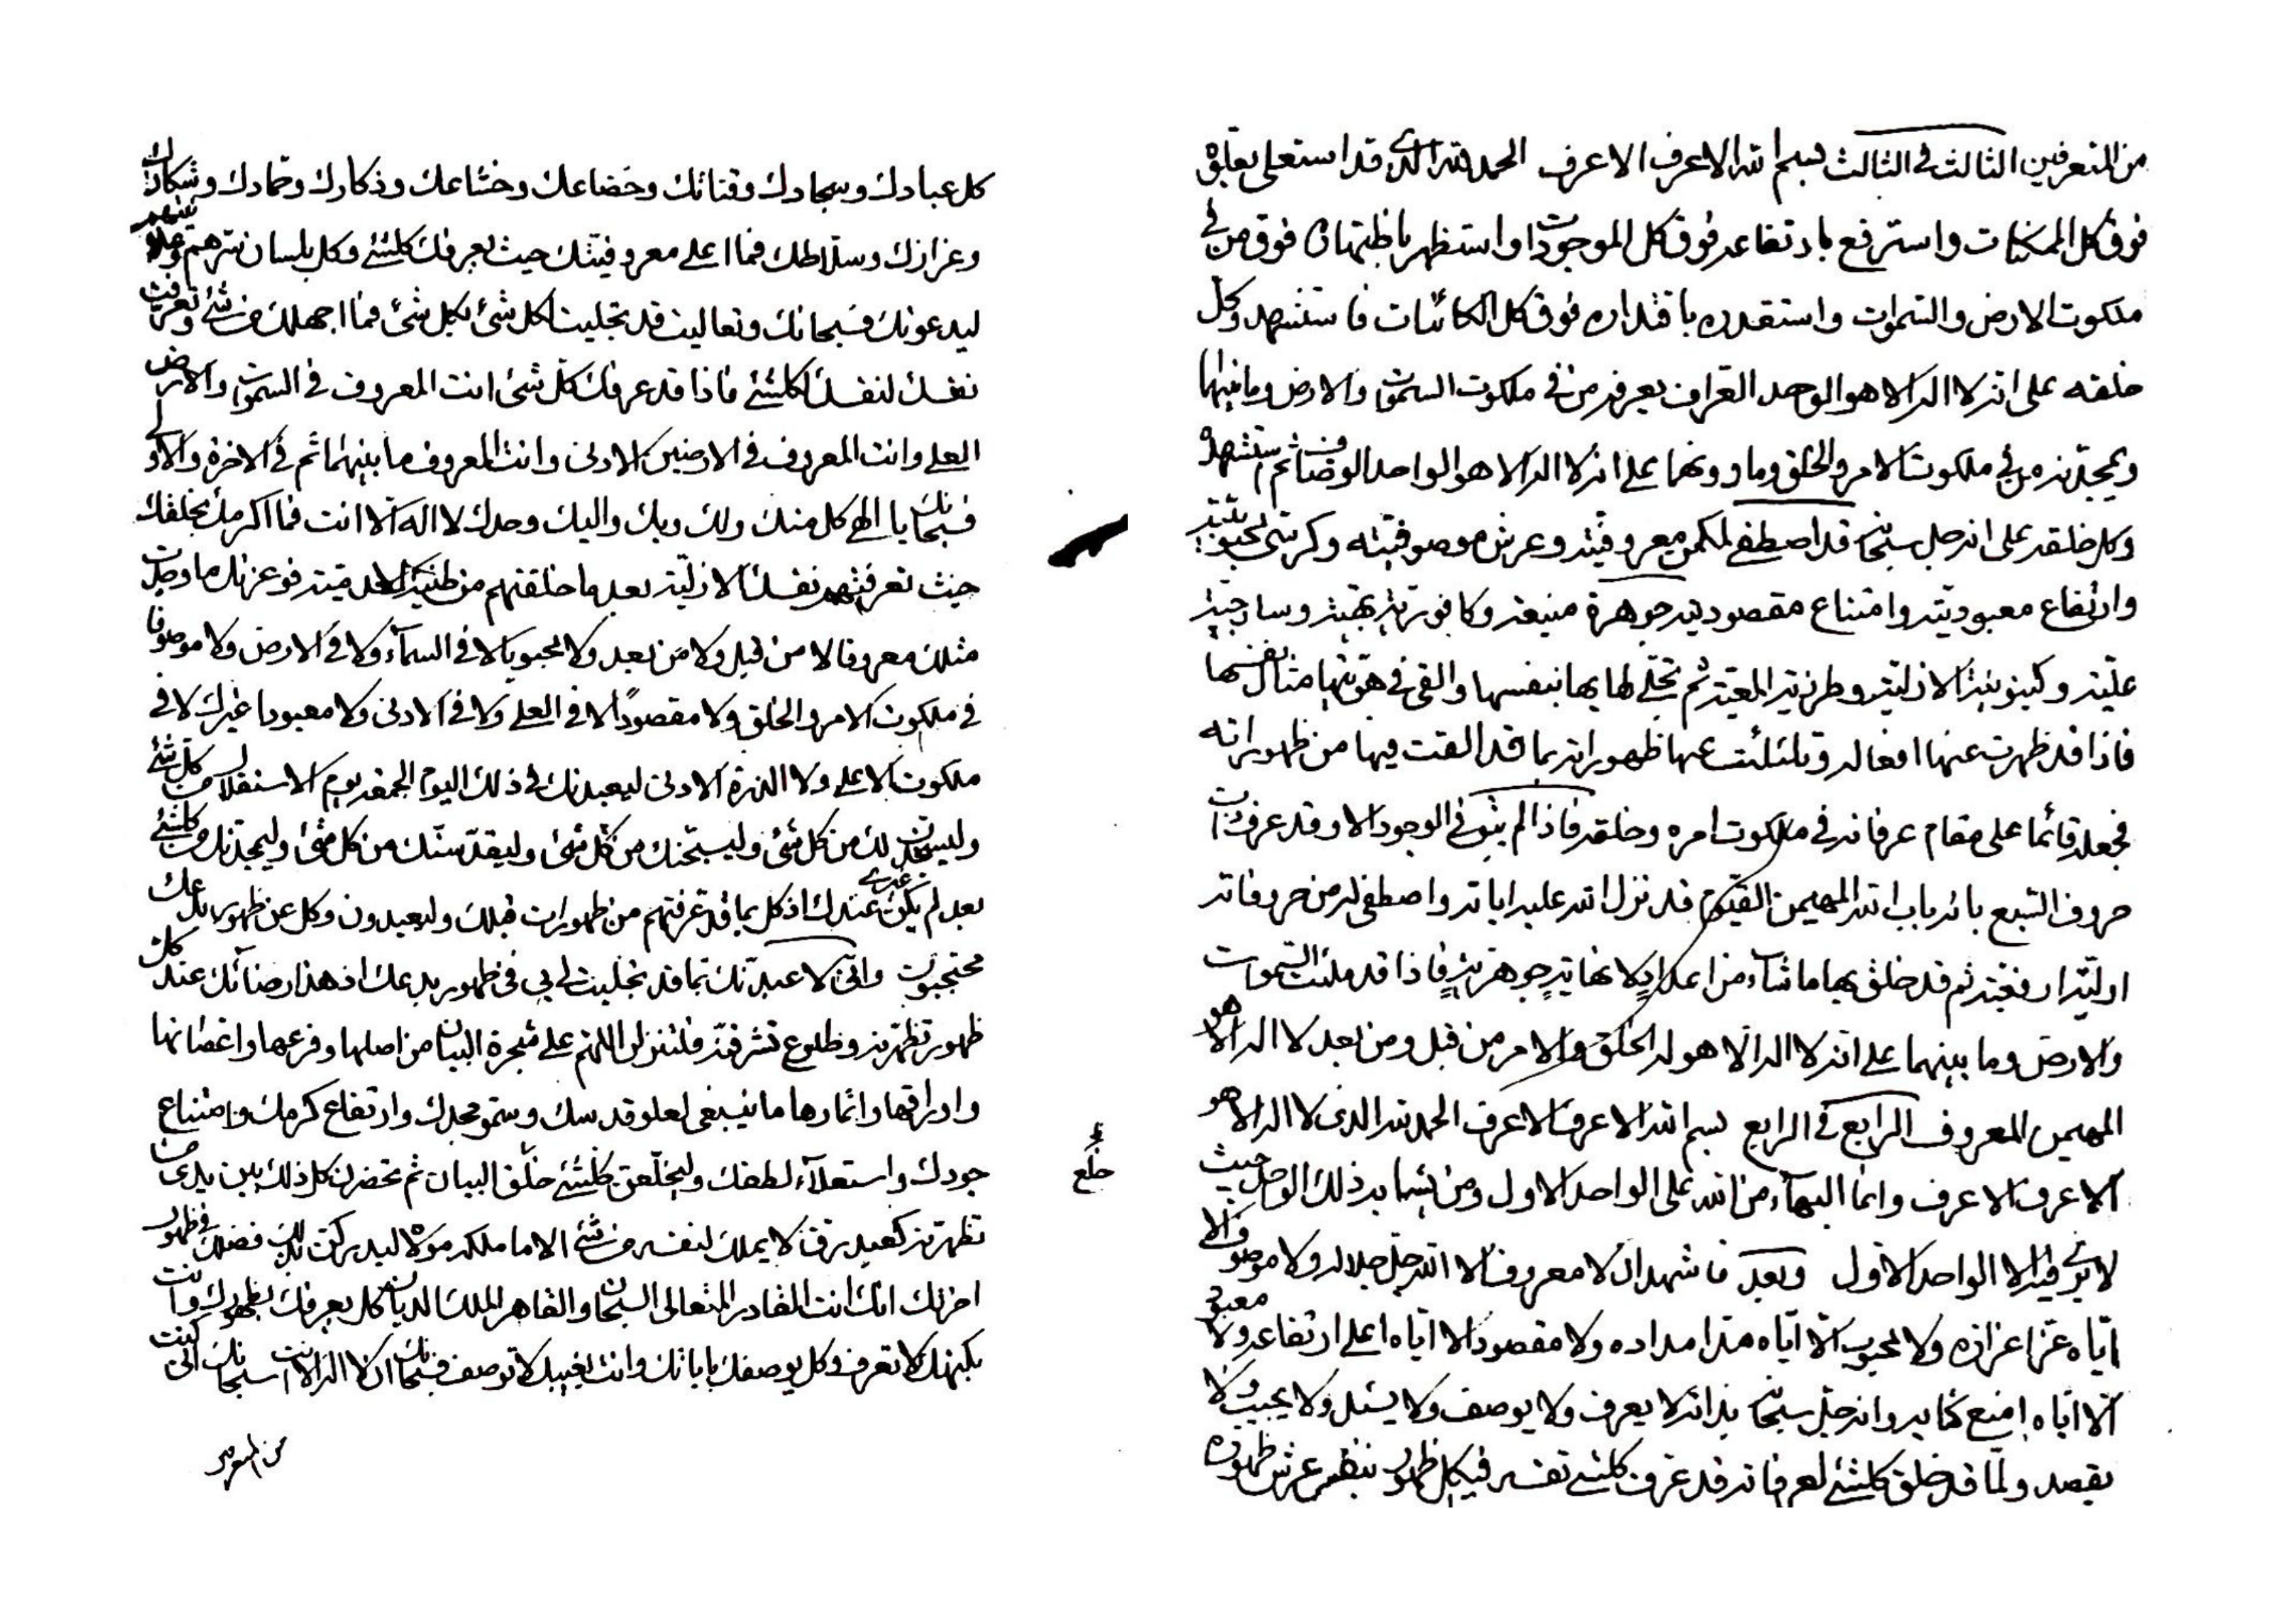 كل عبادك وسجادك وقنائك وخضاعك وخشاعك وذكارك وحمادك وشكارك
وعزازك وسلاطك فما اعلى معروفيتك حيث يعرفك كلشئ وكل بلسان سرهم وعلانيتهم
ليدعونك فسبحانك وتعاليت قد تجليت لكل شئ بكل شئ فما اجهلك من شئ وتعرفت
نفسك لنفسك لكلشئ فاذا قد عرفك كل شئ انت المعروف في السموات والارض
العلى وانت المعروف في الارضين الادنى وانت المعروف ما بينهما ثم في الاخرة والاولى
فسبحانك يا الهي كل منك ولك وبك واليك وحدك لا اله الا انت فما اكرمك بخلقك
حيث تعرفتهم نفسك الازلية بعد ما خلقتهم من طينة فوعزتك ما وجدت
مثلك معروفا لا من قبل ولا من بعد ولا محبوبا لا في السمآء ولا في الارض ولا موصوفا
في ملكوت الامر والخلق ولا مقصودا لا في العلى ولا في الادنى ولا معبودا غيرك لا في
ملكوت الاعلى ولا الذرة الادنى ليعبدنك في ذلك اليوم الجمعة يوم الاستقلال كل شئ
وليسجدن لك من كل شئ وليسبحنك من كل شئ وليقدسنك من كل شئ وليمجدنك من كلشئ
بعد لم يكن عندك اذ كل بما قد عرفتهم من ظهورات قبلك وليعبدون وكل عن ظهور بدعك
محتجبون وانني لاعبدنك بما قد تجليت لي بي في ظهور بدعك اذ هذا رضائك عند كل
ظهور تظهرنه وطلوع تشرقنه فلتنزلن اللهم على شجرة البيان من اصلها وفرعها واغصانها
واوراقها واثمارها ما ينبغي لعلو قدسك وسمو مجدك وارتفاع كرمك وامتناع
جودك واستعلآء لطفك وليخلعن كلشئ خلق البيان ثم تحضرن كل ذلك بين يدي من
تظهرنه كعبد رق لا يملك لنفسه من شئ الا ما ملكه مولاه ليدركن بذلك فضلك في ظهور
اخرتك انك انت القادر المتعالى السبحان والقاهر الملك الديان كل يعرفك بظهورك وانت
بكنهك لا تعرف وكل يوصفك باياتك وانت بغيبك لا توصف فسبحانك ان لا اله الا انت سبحانك اني كنت
من المتعرفين
خلع
من المتعرفين الثالث في الثالث بسم الله الاعرف الاعرف الحمد لله الذي قد استعلى بعلوه
فوق كل الممكنات واسترفع بارتفاعه فوق كل الموجودات واستظهر باظهاره فوق من في
ملكوت الارض والسموات واستقدر باقتداره فوق كل الكائنات فاستشهده وكل
خلقه على انه لا اله الا هو الوحد العراف يعرفه من في ملكوت السموات والارض وما بينهما
ويمجدنه من في ملكوت الامر والخلق وما دونهما على انه لا اله الا هو الواحد الوصاف ثم استشهده
وكل خلقه على انه جل سبحانه قد اصطفى لمكمن معروفيته وعرش موصوفيته وكرسي محبوبيته
وارتفاع معبوديته وامتناع مقصوديته جوهرة منيعة وكافورية بهية وساذجية
علية وكينونية ازلية وطرزية المعية ثم تجلى لها بها بنفسها والقى في هويتها مثال نفسها
فاذا قد ظهرت عنها افعاله وتلئلئت عنها ظهوراته بما قد القت فيها من ظهوراته
فجعله قائما على مقام عرفانه في ملكوت امره وخلقه فاذا لم يبق في الوجود الا وقد عرف ذات
حروف السبع بانه باب الله المهيمن القيوم قد نزل الله عليه اياته واصطفى له من حروفاته
اولية ارفعية ثم قد خلق بها ما شآء من اعداد لا نهاية جوهرية فاذا قد ملئت السموات
والارض وما بينهما على انه لا اله الا هو له الخلق والامر من قبل ومن بعد لا اله الا هو
المهيمن المعروف الرابع في الرابع بسم الله الاعرف الاعرف الحمد لله الذي لا اله الا هو
الاعرف الاعرف وانما البهآء من الله على الواحد الاول ومن يشابه ذلك الواحد حيث
لا يرى فيه الا الواحد الاول وبعد فاشهد ان لا معروف الا الله جل جلاله ولا موصوف الا
اياه عز اعزازه ولا محبوب الا اياه ولا مقصود الا اياه اعلى ارتفاعه ولا معبود
الا اياه امنع وانه جل سبحانه بذاته لا يعرف ولا يوصف ولا يسئل ولا يحبب ولا
يقصد ولما قد خلق كلشئ لعرفانه قد عرف كلشئ نفسه في كل ظهور بنفس عرش ظهوره